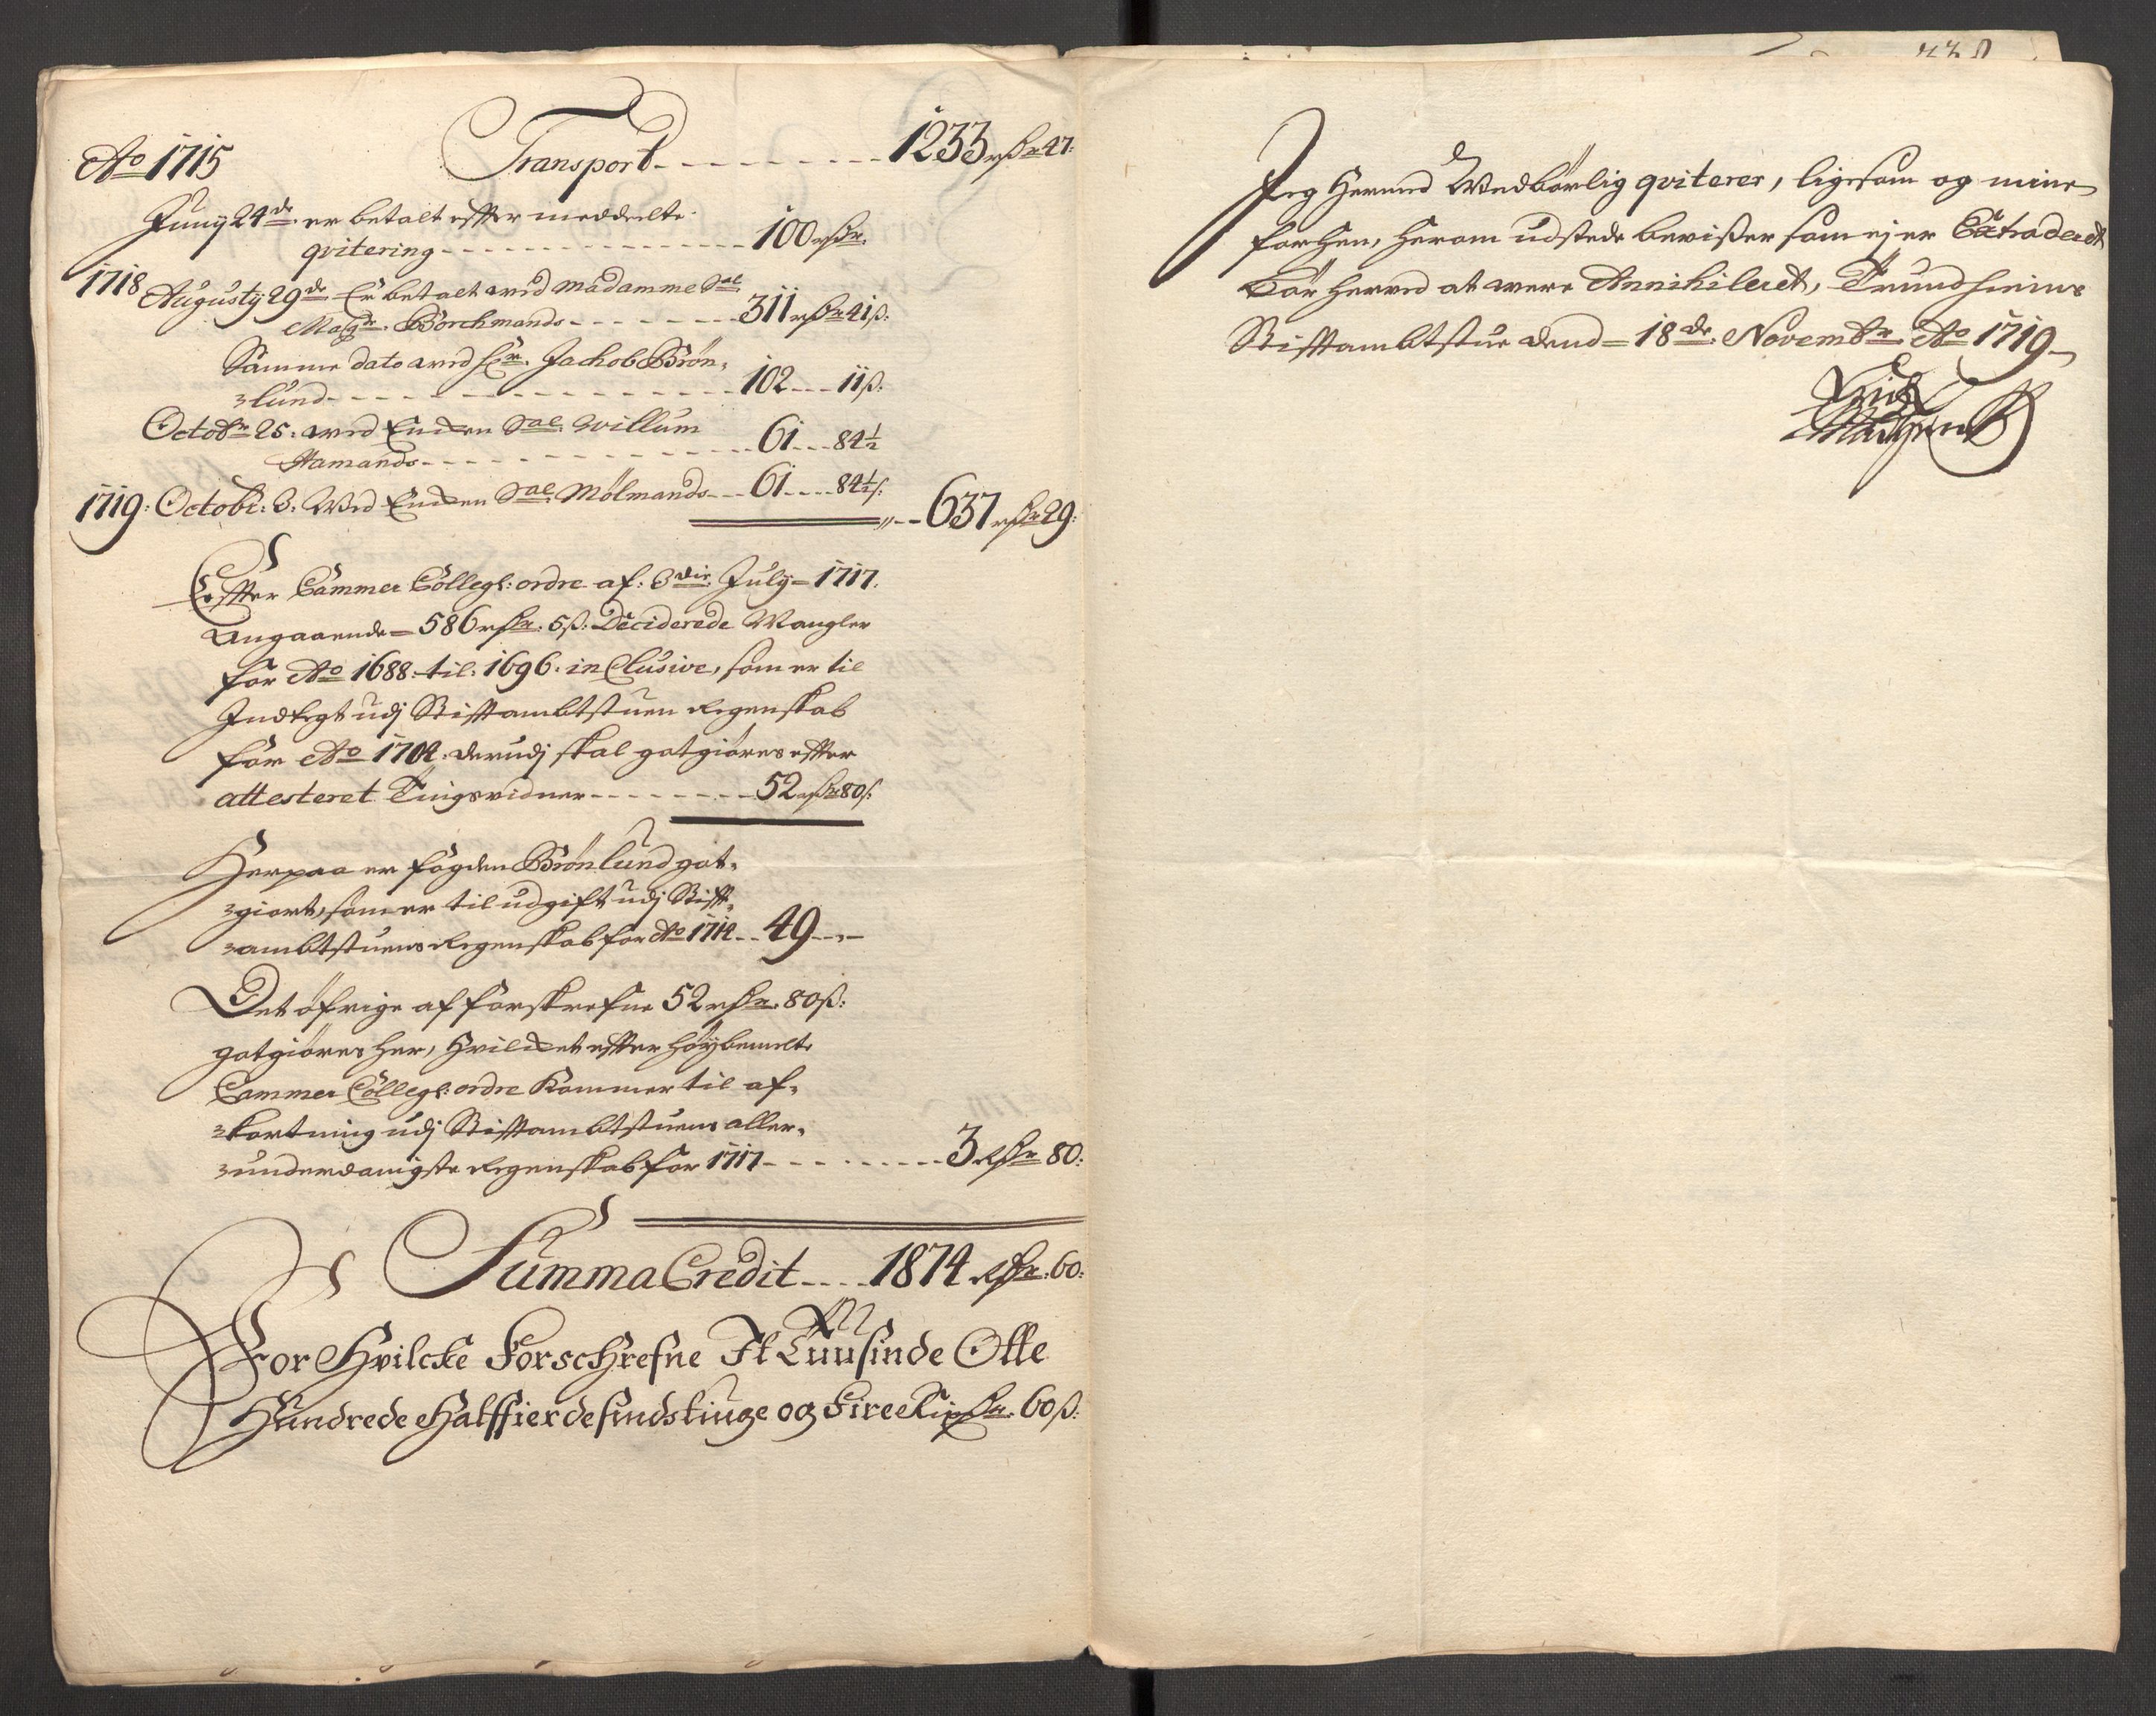 Ao 1715 Transport - - - - - - - - - 1233 rdr 47:
Junij 24de er betalt efter meddeelte
qvitering - - - - - - - - - - - - - - 100 rdr.
1718 Augustij 29de Er betalt ved Madamme Sal.
Magr. Borchmands - - - - - - - 311 rdr 41 ß:
Samme dato ved hr. Jachob Brön-
=lund - - - - - - - - - - - - - - - 102 - - - 11 ß:
Octobr 25. ved Enchen Sal. Willum
Hamands - - - - - - - - - - - - 61 - - - 84½
1719: Octobr: 3. Ved Enchen Sal. Mölmands - - - 61 - - - - 84½ ß: - - 637 rdr 29:
Effter Cammer Collegi: ordre af: 3die July = 1717.
Angaaende = 586 rdr. 5 ß: Deciderede Mangler
for Ao 1688. til: 1696. inClusive, som er til
Indtegt udj Stifftambtstuen Regenskab
for Ao 1704. derudj skal gotgiöres effter
attesteret Tingsvidner - - - - - - - - 52 rdr 80 ß:
Herpaa er fogden Brönlund got-
=giort, som er til udgift udj Stifft-
=ambtstuens Regenskab for Ao 1714 - - 49 - - -
Det öfrige af forskrefne 52 rdr. 80 ß:
gotgiöres her, hvilchet effter höybemelte
Cammer Collegi: ordre kommer til af-
=kortning udj Stifftambtstuens aller-
=underdanigste Regenskab for 1717 - - - - - - - - - 3 Rdr 80:
Summa Credit - - - - 1874 Rdr. 60:
For Hvilcke Forschrefne Et Tuusinde Otte
Hundrede Halffierdesindstiuge og Fire Rixdr. 60 ß:
Jeg Hermed Vedbörlig qviterer, ligesom og mine
forhen, herom udstede beviser som ej er Extraderet
bör herved at were Annihileret, Trundhiems
Stifftambtstue dend = 18de. Novembr. Ao 1719